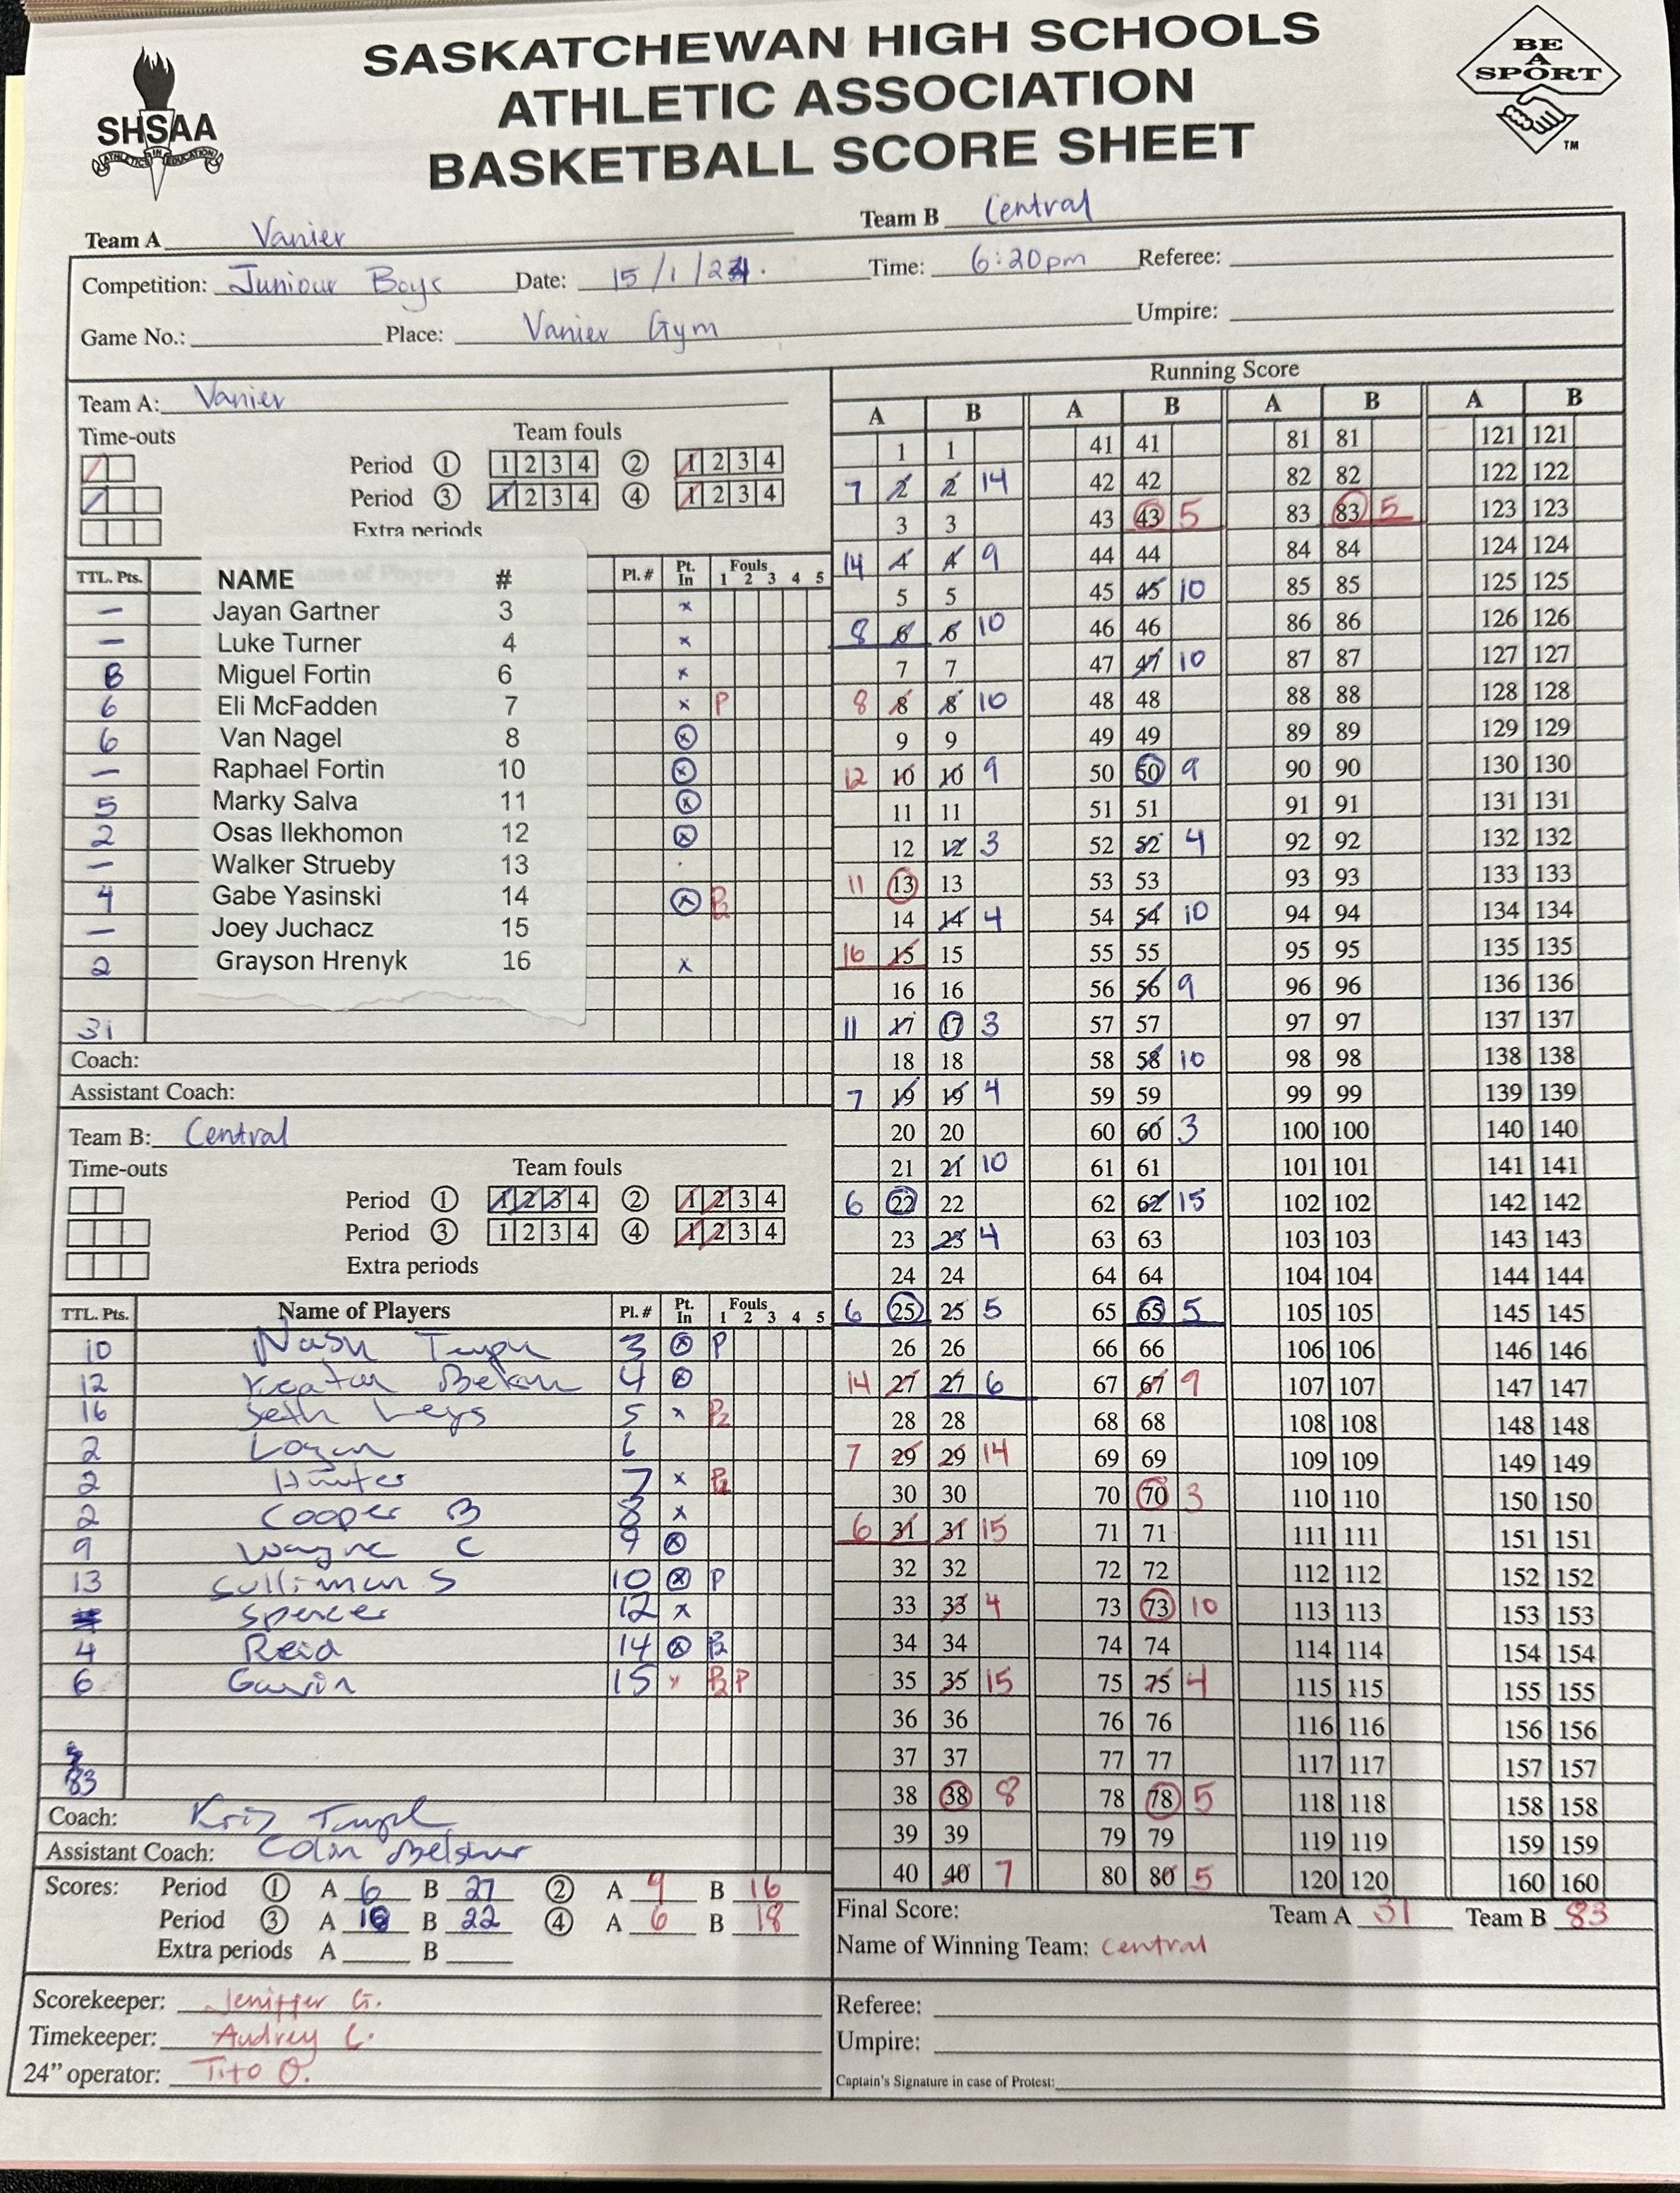 SASKATCHEWAN HIGH SCHOOLS
ATHLETIC ASSOCIATION
BASKETBALL SCORE SHEET
SHSAA
ATHLETICS IN EDUCATION
BE A SPORT
TM
Team A Vanier Team B Central
Competition: Juniour Boys Date: 15/1/24. Time: 6:20pm Referee:
Game No.: Place: Vanier Gym Umpire:
Team A: Vanier
Time-outs Team fouls
Period 1 1 2 3 4 2 1 2 3 4
Period 3 1 2 3 4 4 1 2 3 4
Extra periods
TTL. Pts. NAME # Pl. # Pt. In Fouls 1 2 3 4 5
– Jayan Gartner 3 x
– Luke Turner 4 x
8 Miguel Fortin 6 x
6 Eli McFadden 7 x P
6 Van Nagel 8 x
– Raphael Fortin 10 x
5 Marky Salva 11 x
2 Osas Ilekhomon 12 x
– Walker Strueby 13
4 Gabe Yasinski 14 x P2
– Joey Juchacz 15
2 Grayson Hrenyk 16 x
31
Coach:
Assistant Coach:
Team B: Central
Time-outs Team fouls
Period 1 1 2 3 4 2 1 2 3 4
Period 3 1 2 3 4 4 1 2 3 4
Extra periods
TTL. Pts. Name of Players Pl. # Pt. In Fouls 1 2 3 4 5
10 Nash 3 x P
12 4 x
16 Seth Leys 5 x P2
2 Logan 6
2 Hunter 7 x P2
2 Cooper B 8 x
9 Wayne C 9 x
13 S 10 x P
Spencer 12 x
4 Reid 14 x P2
6 Gavin 15 x P2 P
83
Coach: Kris
Assistant Coach: Colin
Scores: Period 1 A 6 B 27 2 A 9 B 16
Period 3 A 10 B 22 4 A 6 B 18
Extra periods A B
Scorekeeper: Jeniffer G.
Timekeeper: Audrey C.
24” operator: Tito O.
Running Score
A B A B A B A B
1 1 41 41 81 81 121 121
7 2 2 14 42 42 82 82 122 122
3 3 43 43 5 83 83 5 123 123
14 4 4 9 44 44 84 84 124 124
5 5 45 45 10 85 85 125 125
8 6 6 10 46 46 86 86 126 126
7 7 47 47 10 87 87 127 127
8 8 8 10 48 48 88 88 128 128
9 9 49 49 89 89 129 129
12 10 10 9 50 50 9 90 90 130 130
11 11 51 51 91 91 131 131
12 12 3 52 52 4 92 92 132 132
11 13 13 53 53 93 93 133 133
14 14 4 54 54 10 94 94 134 134
16 15 15 55 55 95 95 135 135
16 16 56 56 9 96 96 136 136
11 17 17 3 57 57 97 97 137 137
18 18 58 58 10 98 98 138 138
7 19 19 4 59 59 99 99 139 139
20 20 60 60 3 100 100 140 140
21 21 10 61 61 101 101 141 141
6 22 22 62 62 15 102 102 142 142
23 23 4 63 63 103 103 143 143
24 24 64 64 104 104 144 144
6 25 25 5 65 65 5 105 105 145 145
26 26 66 66 106 106 146 146
14 27 27 6 67 67 9 107 107 147 147
28 28 68 68 108 108 148 148
7 29 29 14 69 69 109 109 149 149
30 30 70 70 3 110 110 150 150
6 31 31 15 71 71 111 111 151 151
32 32 72 72 112 112 152 152
33 33 4 73 73 10 113 113 153 153
34 34 74 74 114 114 154 154
35 35 15 75 75 4 115 115 155 155
36 36 76 76 116 116 156 156
37 37 77 77 117 117 157 157
38 38 8 78 78 5 118 118 158 158
39 39 79 79 119 119 159 159
40 40 7 80 80 5 120 120 160 160
Final Score: Team A 31 Team B 83
Name of Winning Team: Central
Referee:
Umpire:
Captain's Signature in case of Protest: